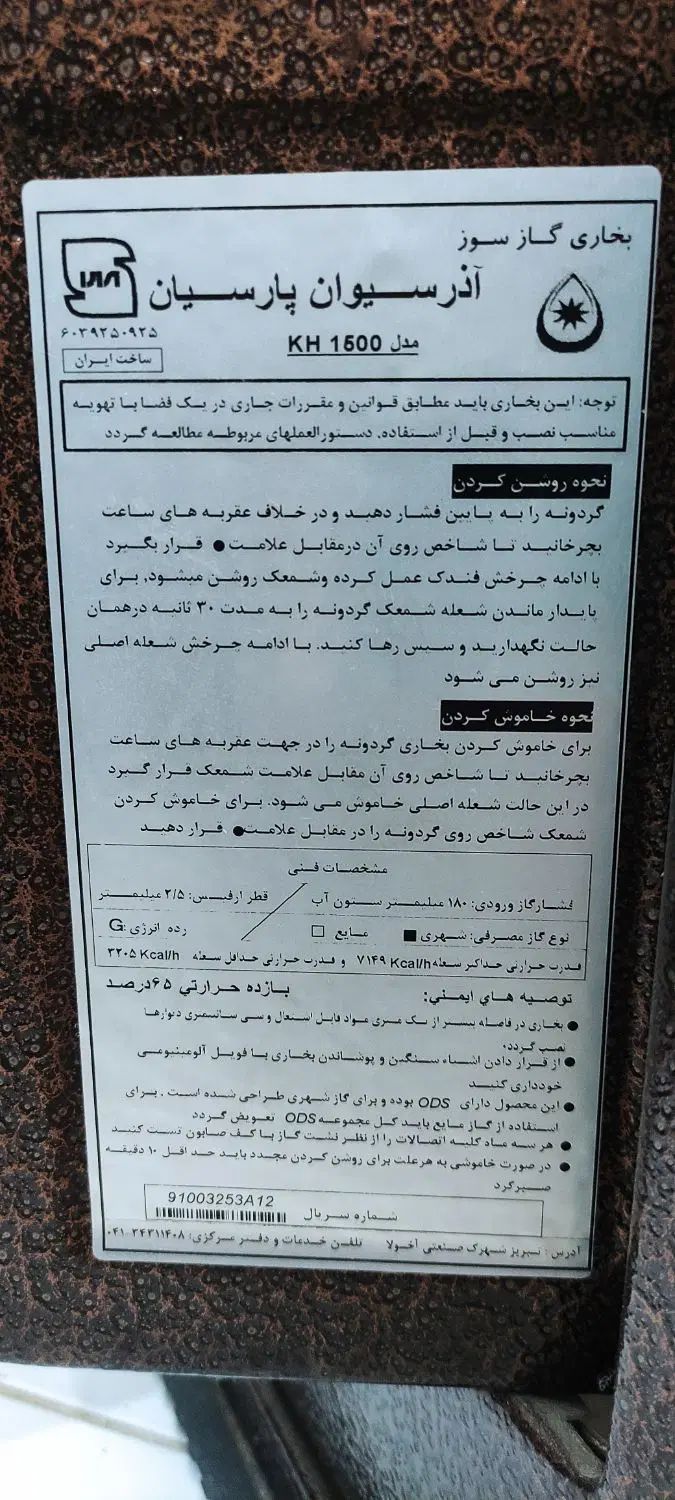 بخاری گاز سوز
آذرسیوان پارسیان
۶۰۳۹۲۵۰۹۲۵
مدل KH 1500
ساخت ایران
توجه: این بخاری باید مطابق قوانین و مقررات جاری در یک فضا با تهویه
مناسب نصب و قبل از استفاده، دستورالعملهای مربوطه مطالعه گردد
نحوه روشن کردن
گردونه را به پایین فشار دهید و در خلاف عقربه های ساعت
بچرخانید تا شاخص روی آن درمقابل علامت● قرار بگیرد
با ادامه چرخش فندک عمل کرده وشمعک روشن میشود، برای
پایدار ماندن شعله شمعک گردونه را به مدت ۳۰ ثانیه درهمان
حالت نگهدارید و سپس رها کنید. با ادامه چرخش شعله اصلی
نیز روشن می شود
نحوه خاموش کردن
برای خاموش کردن بخاری گردونه را در جهت عقربه های ساعت
بچرخانید تا شاخص روی آن مقابل علامت شمعک قرار گیرد
در این حالت شعله اصلی خاموش می شود. برای خاموش کردن
شمعک شاخص روی گردونه را در مقابل علامت● قرار دهید
مشخصات فنی
فشارگاز ورودی: ۱۸۰ میلیمتر ستون آب قطر ارفیس: ۲/۵ میلیمتر
نوع گاز مصرفی: شهری ■ مایع □ رده انرژی: G
قدرت حرارتی حداکثر شعله ۷۱۴۹ Kcal/h و قدرت حرارتی حداقل شعله ۳۲۰۵ Kcal/h
توصیه های ایمنی: بازده حرارتی ۶۵درصد
● بخاری در فاصله بیشتر از یک متری مواد قابل اشتعال و سی سانتیمتری دیوارها
نصب گردد،
● از قرار دادن اشیاء سنگین و پوشاندن بخاری با فویل آلومینیومی
خودداری کنید
● این محصول دارای ODS بوده و برای گاز شهری طراحی شده است . برای
استفاده از گاز مایع باید کل مجموعه ODS تعویض گردد
● هر سه ماه کلیه اتصالات را از نظر نشت گاز با کف صابون تست کنید
● در صورت خاموشی به هرعلت برای روشن کردن مجدد باید حداقل ۱۰ دقیقه
صبرکرد
91003253A12
شماره سریال
آدرس : تبریز شهرک صنعتی آخولا تلفن خدمات و دفتر مرکزی: ۰۴۱-۳۴۳۱۱۴۰۸